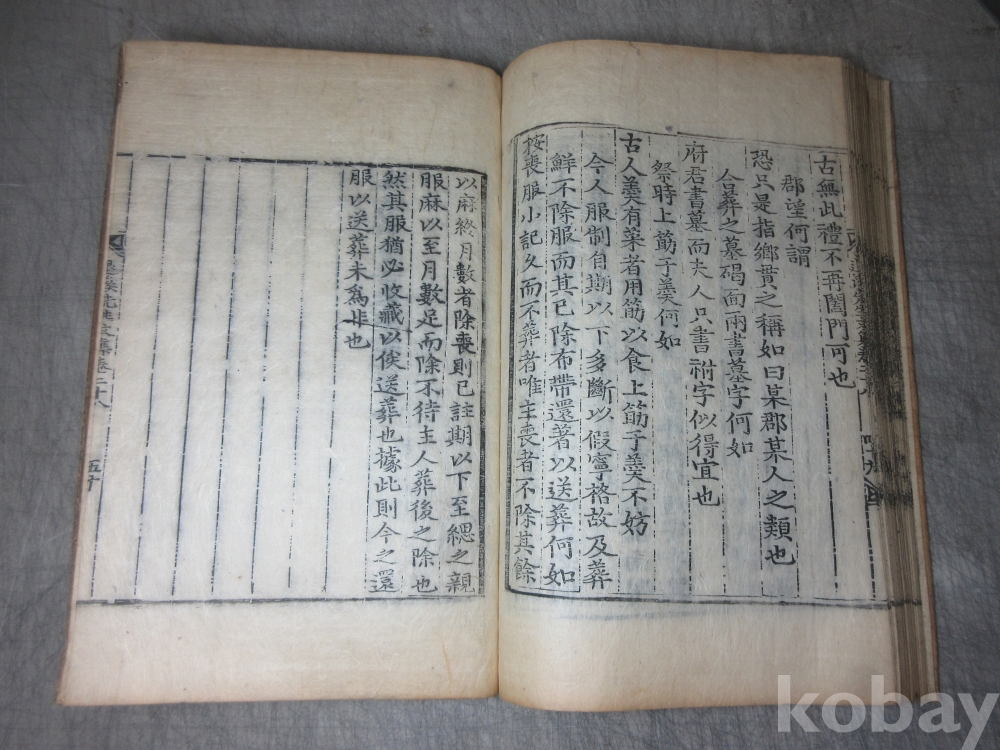 古無此禮不再闔門可也
郡望何謂
恐只是指鄉貫之稱如曰某郡某人之類也
合葬之墓碣面兩書墓字何如
府君書墓而夫人只書祔字似得宜也
祭時上筯于羹何如
古人羹有菜者用筯以食上筯于羹不妨
今人服制自期以下多斷以假寧格故及葬
鮮不除服而其已除布帶還著以送葬何如
按喪服小記久而不葬者唯主喪者不除其餘
以麻終月數者除喪則已註期以下至緦之親
服麻以至月數足而除不待主人葬後之除也
然其服猶必收藏以俟送葬也據此則今之還
服以送葬未爲非也
文集卷二十八
五十
kobay